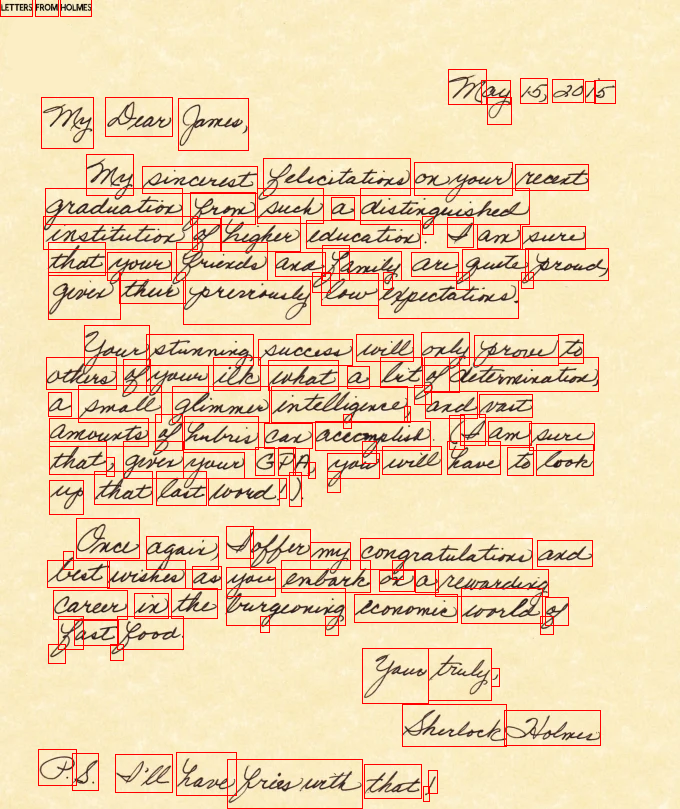 LETTERS FROM HOLMES
May 15, 2015
My Dear James,
My sincerest felicitations on your recent
graduation from such a distinguished
institution of higher education. I am sure
that your friends and family are quite proud,
given their previously low expectations.
Your stunning success will only prove to
others of your ilk what a bit of determination,
a small glimmer intelligence, and vast
amounts of hubris can accomplish. (I am sure
that, given your GPA, you will have to look
up that last word!).
Once again, I offer my congratulations and
best wishes as you embark on a rewarding
career in the burgeoning economic world of
fast food.
Your truly,
Sherlock Holmes
P.S. I'll have fries with that!